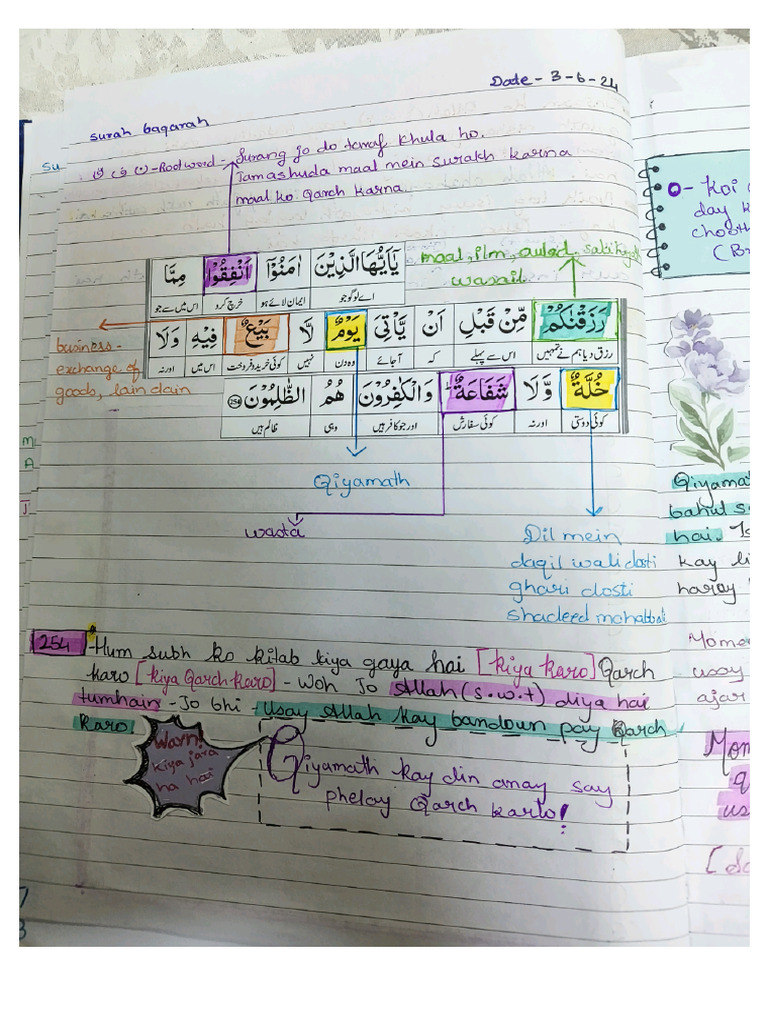 Date - 3-6-24
Surah baqarah
Su
(ن ف ق) - Root word - Surang jo do taraf khula ho.
Tamashuda maal mein surakh karna
maal ko Qarch karna.
maal, ilm, aulad
wasail
يٰٓاَيُّهَا الَّذِيْنَ اٰمَنُوْٓا اَنْفِقُوْا مِمَّا
اے لوگو جو ایمان لائے ہو خرچ کرو اس میں سے جو
رَزَقْنٰكُمْ مِّنْ قَبْلِ اَنْ يَّاْتِيَ يَوْمٌ لَّا بَيْعٌ فِيْهِ وَلَا
رزق دیا ہم نے تمہیں اس سے پہلے کہ آجائے وہ دن نہیں کوئی خرید و فروخت اس میں اور نہ
خُلَّةٌ وَّلَا شَفَاعَةٌ ؕ وَالْكٰفِرُوْنَ هُمُ الظّٰلِمُوْنَ ﴿254﴾
کوئی دوستی اور نہ کوئی سفارش اور جو کافر ہیں وہی ظالم ہیں
business -
exchange of
goods, lain dain
Qiyamath
wasta
Dil mein
daqil wali dosti
ghari dosti
shadeed mohabbat
254 - Hum subh ko kitab kiya gaya hai [kiya karo] Qarch
karo [kiya Qarch karo] - Woh Jo Allah (s.w.t) diya hai
tumhain - Jo bhi - usay Allah kay bandoun pay Qarch
Karo.
Warn!
kiya jara
ha hai
Qiyamath kay din anay say
phelay Qarch karlo!
O - Koi
day
(B
Qiyama
bahut s
hai.
kay li
haray
Mome
usay
ajar
Mom
q
us
M
A
J
7
3